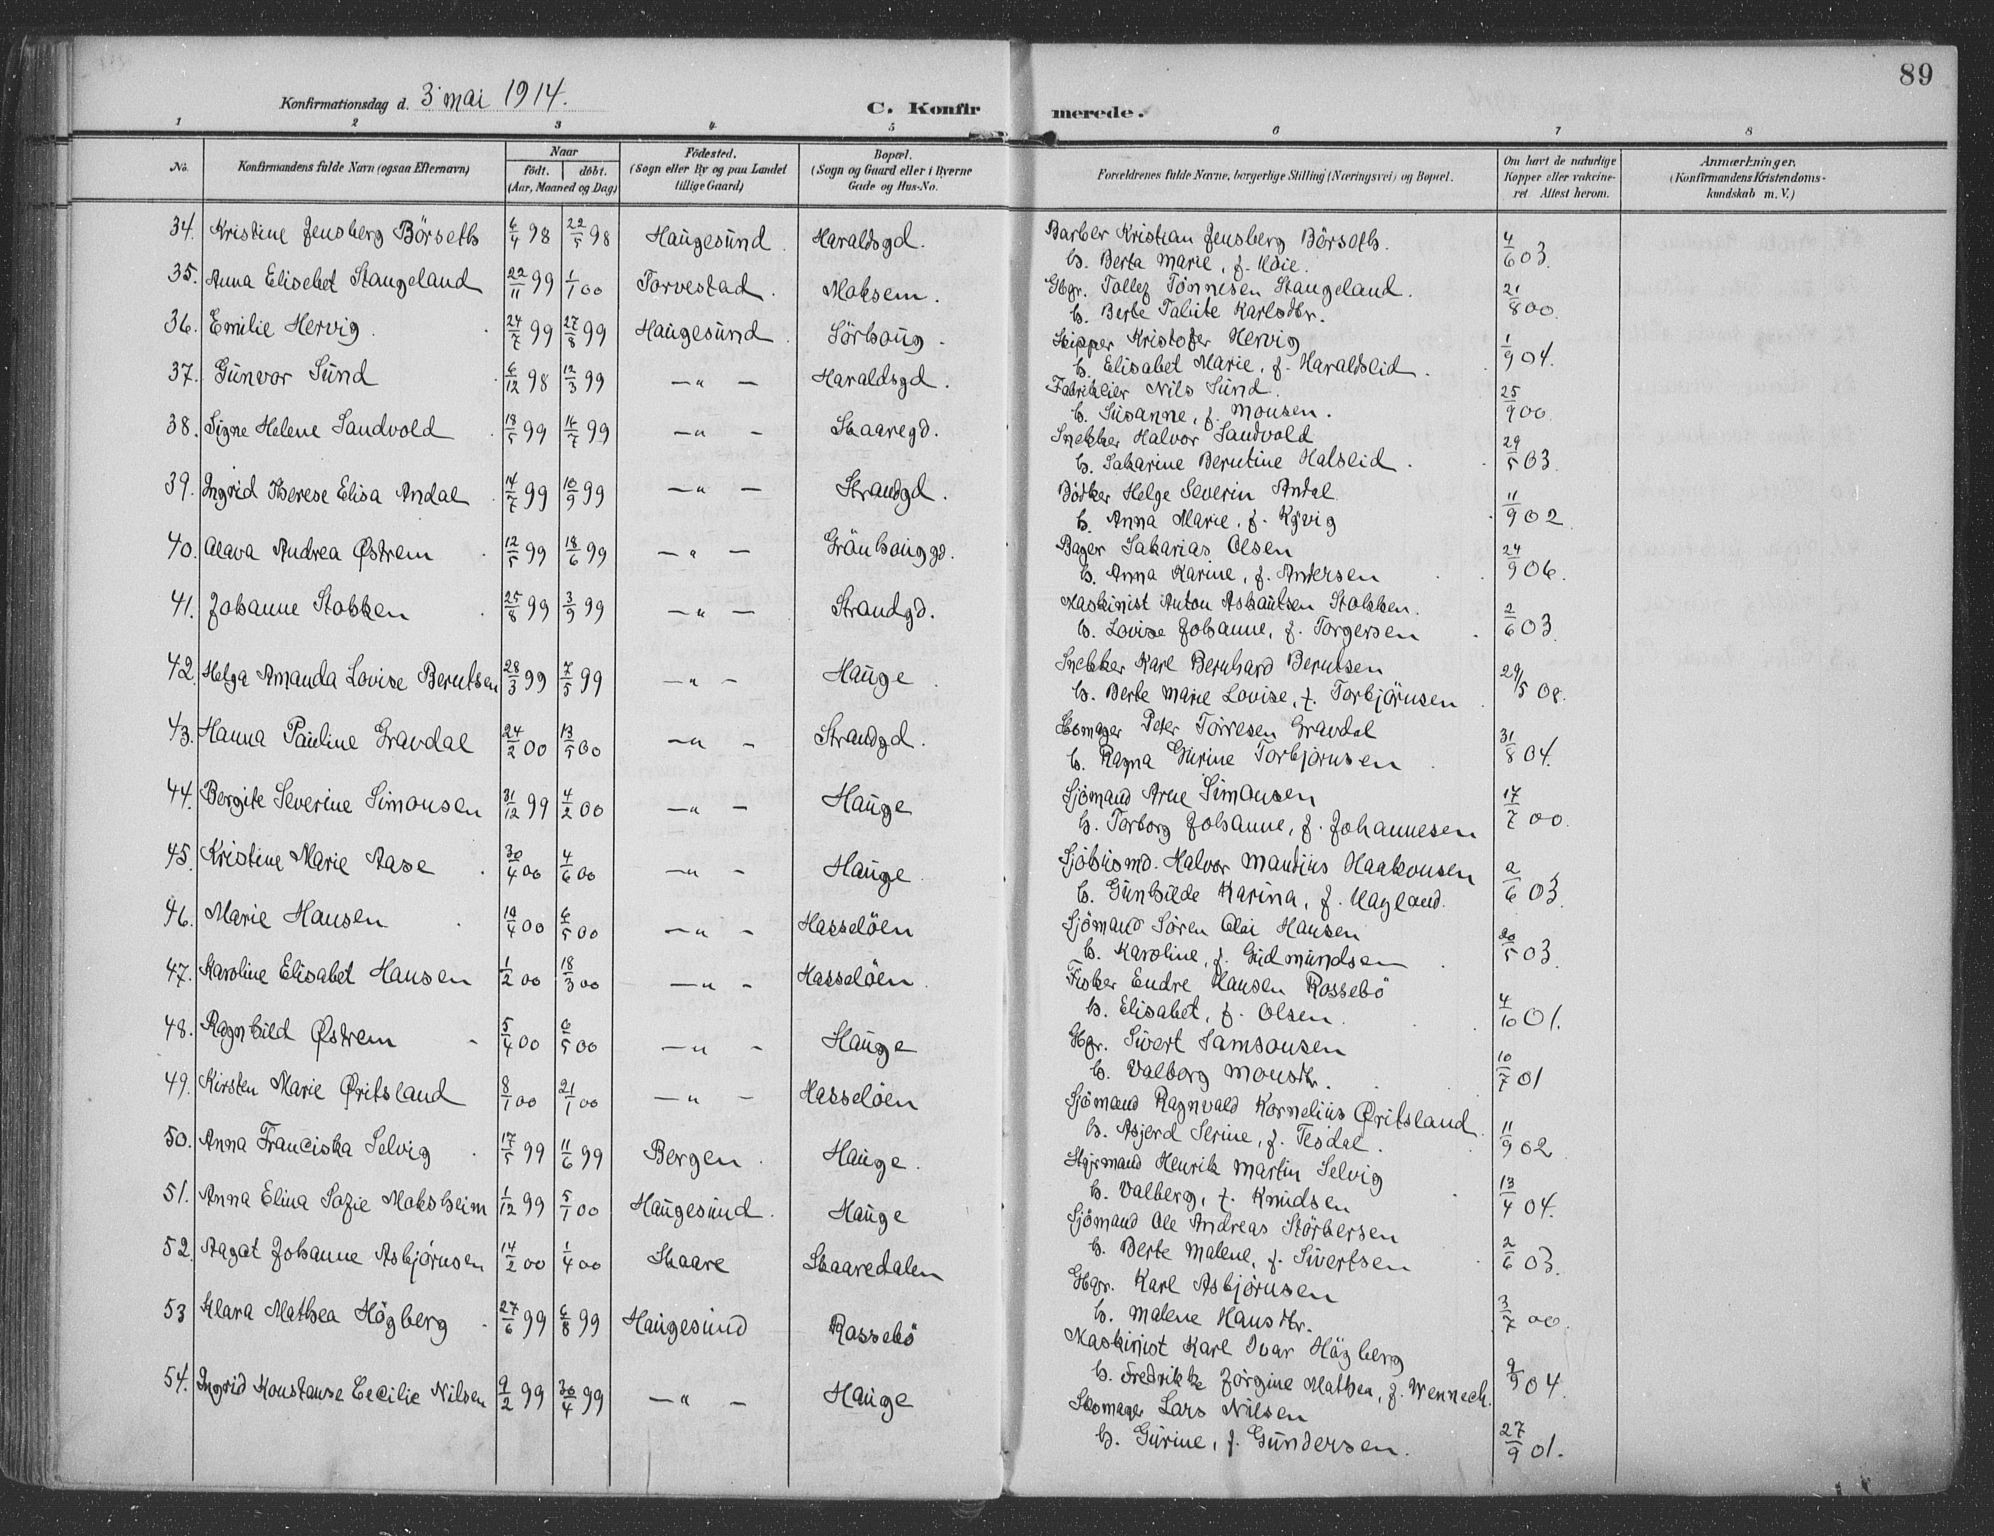 89
Konfirmationsdag d. 3 mai 1914.
C. Konfirmerede.
1 2 3 4 5 6 7 8
No. Konfirmandens fulde Navn (ogsaa Efternavn) Naar født. døbt. (Aar, Maaned og Dag) Fødested. (Sogn eller By og paa Landet tillige Gaard) Bopæl. (Sogn og Gaard eller i Byerne Gade og Hus-No. Forældrenes fulde Navne, borgerlige Stilling (Næringsvei) og Bopæl. Om havt de naturlige Kopper eller vakcineret Attest herom. Anmærkninger. (Konfirmandens Kristendomskundskab m. V.)
34. Kristine Jensberg Börseth 6/4 98 22/5 98 Haugesund Haraldsgd. Barber Kristian Jensberg Börseth. 4/6 03.
h. Berta Marie, f.
35. Anna Elisebet Stangeland 22/11 99 1/1 00 Torvestad. Moksem. Gbgr. Tönnesen Stangeland. 21/8 00.
h. Berte Talite Karlsdtr.
36. Emilie Hervig 24/7 99 27/8 99 Haugesund Sörhoug. Skipper Kristofer Hervig 1/9 04.
h. Elisabet Marie, f. Haraldseid
37. Gunvor Sund 6/12 98 12/3 99 —„— Haraldsgd. Fabrikeier Nils Sund. 25/9 00.
h. Susanne, f. Monsen.
38. Signe Helene Sandvold 18/5 99 16/7 99 —„— Skaaregd. Snekker Halvor Sandvold 29/5 03.
h. Sakarine Berntine Halseid.
39. Ingrid Therese Elisa Andal 14/7 99 10/9 99 —„— Strandgd. Bödker Helge Severin Andal 11/9 02.
h. Anna Marie, f. Kyvig
40. Alava Andrea Østrem 12/5 99 18/6 99 —„— Grönhauggd. Bager Sakarias Olsen 24/9 06.
h. Anna Karine, f. Andersen
41. Johanne Stokken 25/8 99 3/9 99 —„— Strandgd. Maskinist Anton Askautsen Stokken. 2/6 03.
h. Lovise Johanne, f. Torgersen
42. Helga Amanda Lovise Berntsen 28/3 99 7/5 99 —„— Hauge Snekker Karl Bernhard Berntsen 29/5 08.
h. Berte Marie Lovise, f. Torbjörnsen
43. Hanna Pauline Gravdal 24/2 00 13/5 00 —„— Strandgd. Skomager Peter Torresen Gravdal 31/8 04.
h. Ragna Gurine Torbjörnsen
44. Bergite Severine Simonsen 31/12 99 4/2 00 —„— Hauge Sjömand Arne Simonsen 17/7 00.
h. Torborg Johanne, f. Johannesen
45. Kristine Marie Aase 30/4 00 4/6 00 —„— Hauge. Sjöbusmd. Halvor Mandius Haakonsen 2/6 03.
h. Gunhilde Karina, f. Hagland.
46. Marie Hansen 10/4 00 6/5 00 —„— Hasselöen Sjömand Sören Olai Hansen 20/5 03.
h. Karoline, f. Gudmundsen
47. Karoline Elisabet Hansen 1/2 00 18/3 00 —„— Hasselöen. Fisker Endre Hansen Rossebö 4/10 01.
h. Elisabet, f. Olsen.
48. Ragnhild Østrem 5/4 00 6/5 00 —„— Hauge Gbgr. Sivert Samsonsen 10/7 01
h. Valborg Monsdtr.
49. Kirsten Marie Øritsland 8/1 00 21/1 00 —„— Hasselöen Sjömand Ragnvald Kornelius Øritsland. 11/9 02.
h. Asjerd Serine, f. Tesdal.
50. Anna Franciska Selvig 17/5 99 11/6 99 Bergen. Hauge. Styrmand Henrik Martin Selvig 13/4 04.
h. Valberg, f. Knudsen
51. Anna Elina Sofie Moksheim 1/12 99 5/1 00 Haugesund. Hauge Sjömand Ole Andreas Störkersen 2/6 03.
h. Berte Malene, f. Sivertsen
52. Aagat Johanne Asbjörnsen 14/2 00 1/4 00 Skaare Skaaredalen Gbgr. Karl Asbjörnsen 3/7 00.
h. Malene Hansdtr.
53 Klara Mathea Högberg 27/6 99 6/8 99 Haugesund Rossebö Maskinist Karl Ivar Högberg 9/9 04.
h. Fredrikke Jörgine Mathea, f. Wennech.
54. Ingrid Konstanse Cecilie Nilsen 9/2 99 30/4 99 —„— Hauge Skomager Lars Nilsen 27/9 01.
h. Gurine, f. Gundersen.